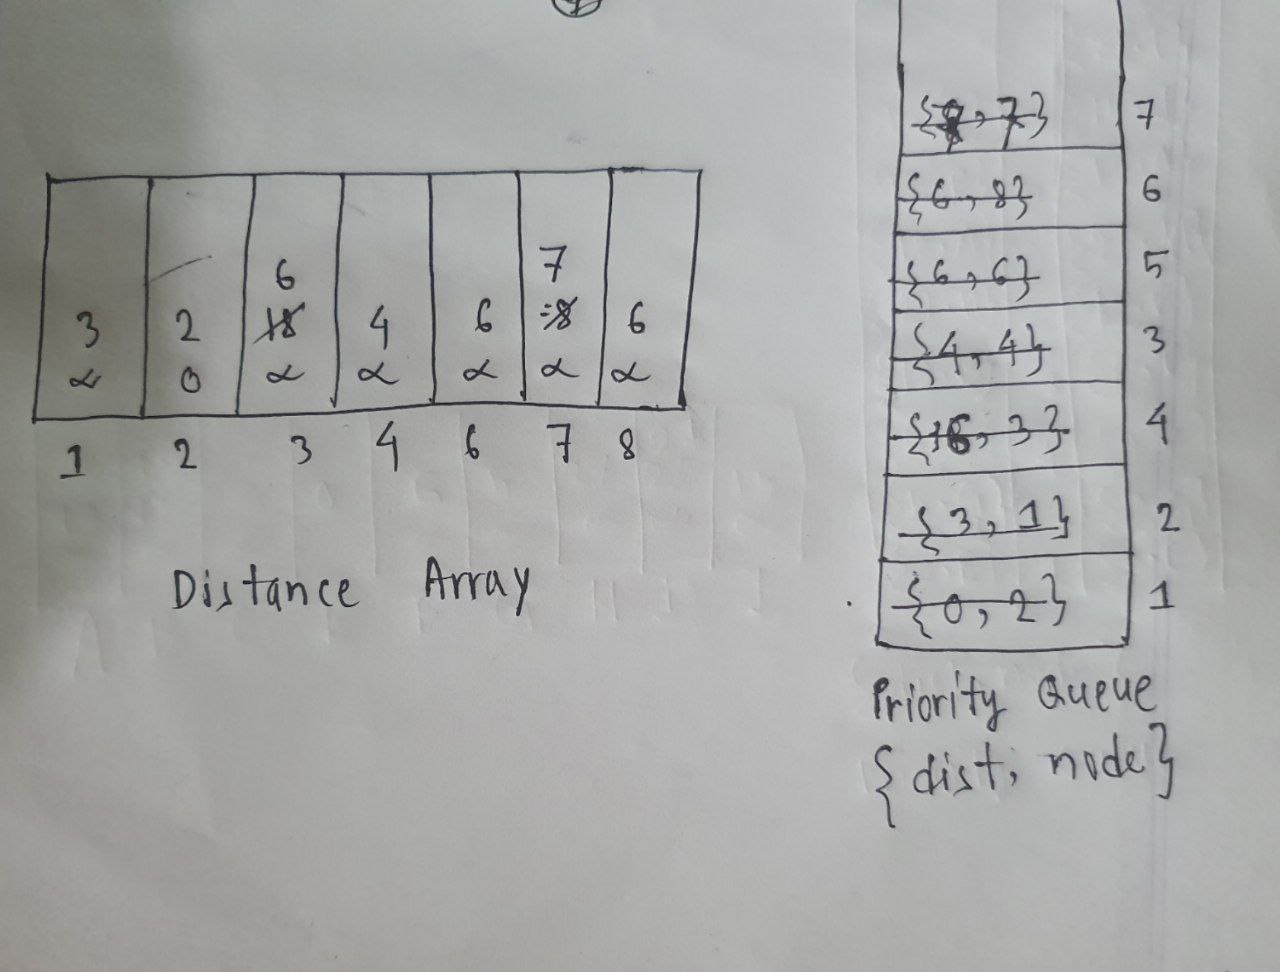 6 7
3 2 18 4 6 8 6
α 0 α α α α α
1 2 3 4 6 7 8
Distance Array
{, 7} 7
{6, 8} 6
{6, 6} 5
{4, 4} 3
{, 3} 4
{3, 1} 2
{0, 2} 1
Priority Queue
{dist, node}